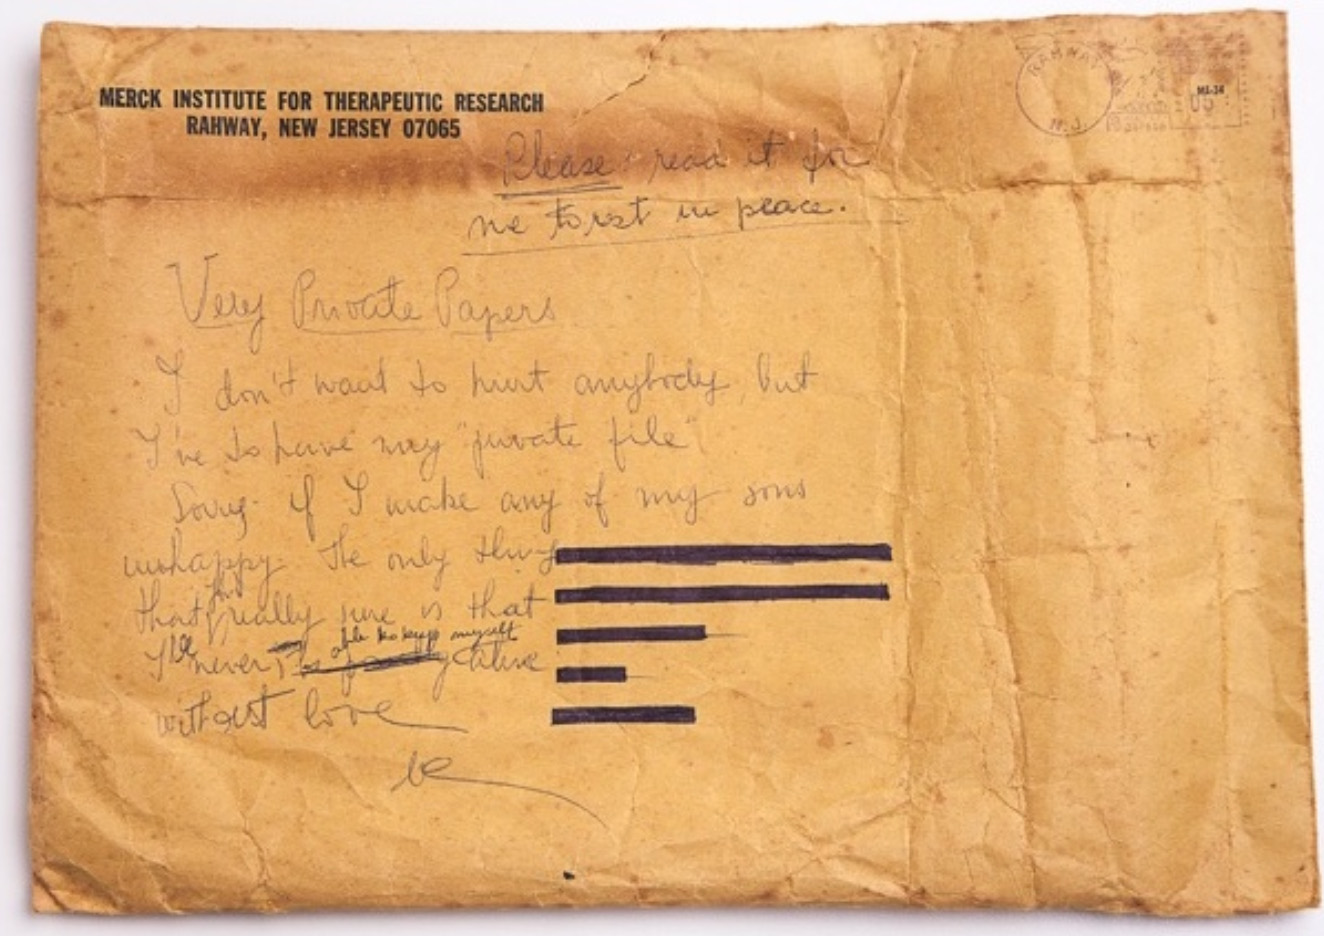 MERCK INSTITUTE FOR THERAPEUTIC RESEARCH
RAHWAY, NEW JERSEY 07065
RAHWAY
N.J.
Please read it for
me to rest in peace.
Very Private Papers
I don't want to hurt anybody, but
I've to have my "private file"
Sorry if I make any of my sons
unhappy. The only thing
that really sure is that
never able to keep myself alive
without love